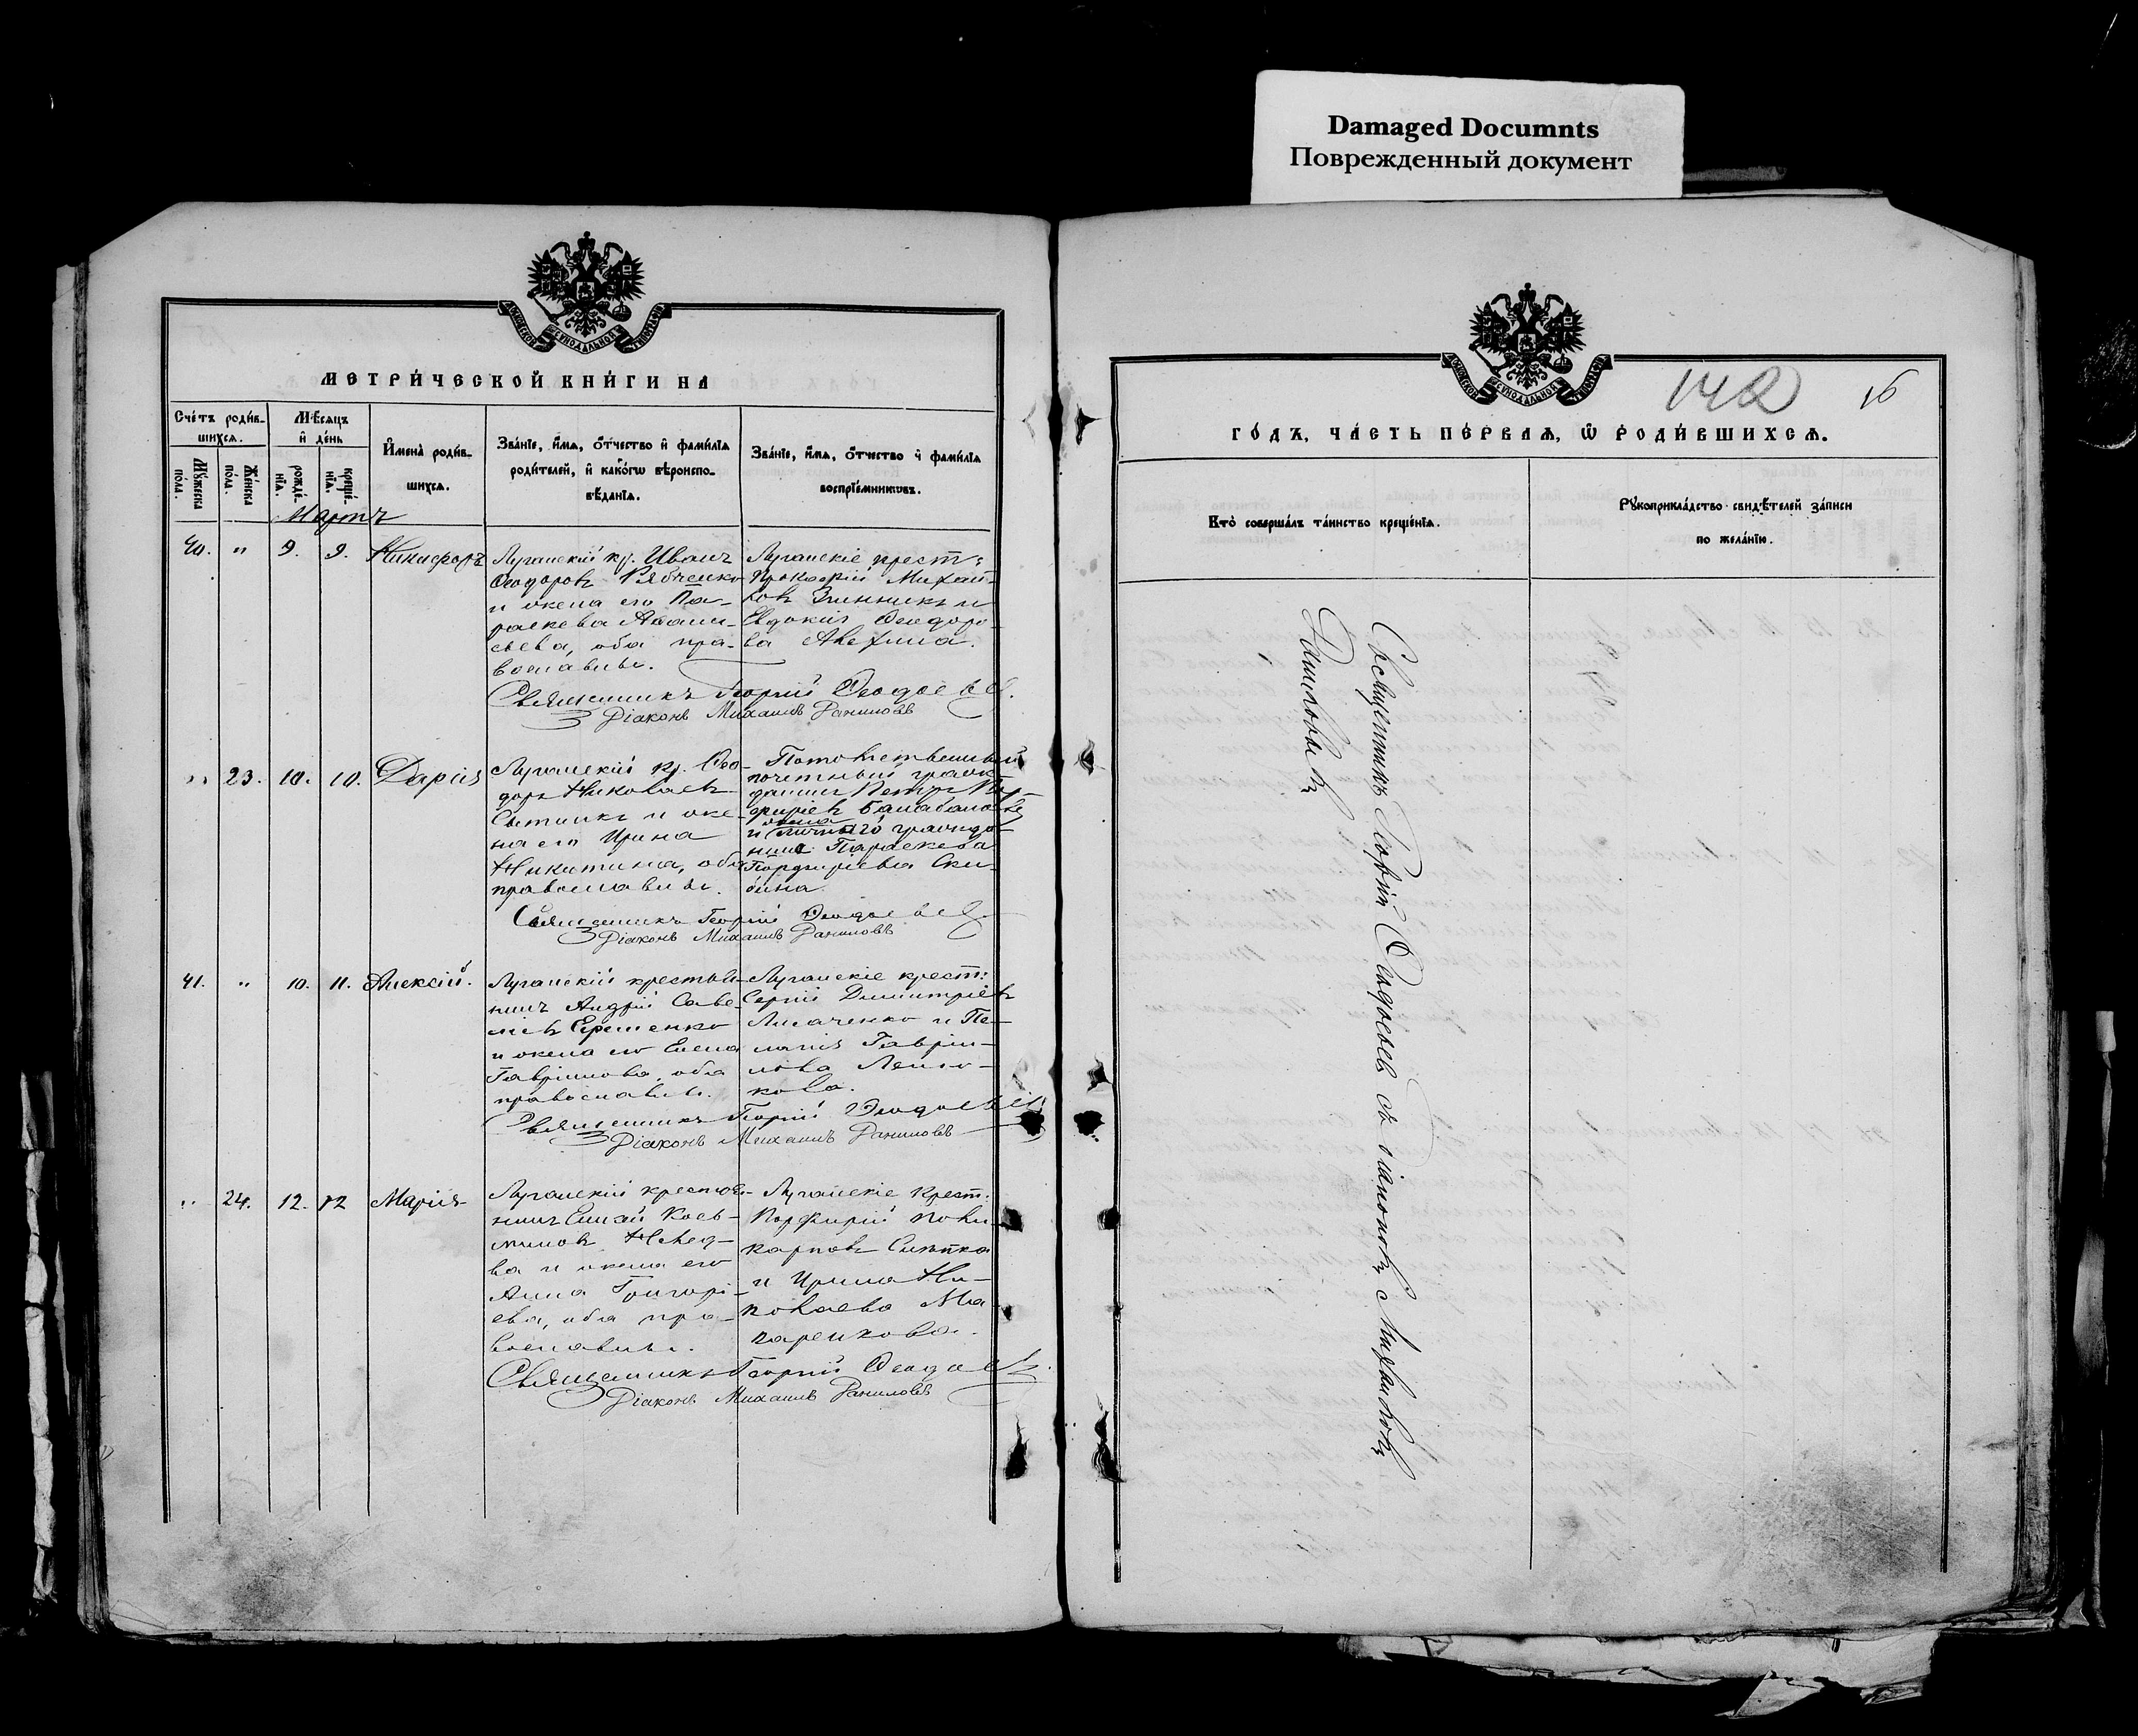 Damaged Documnts
Поврежденный документ
МОСКОВСКОЙ СѴНОДАЛЬНОЙ ТИПОГРАФІИ
МЕТРИ́ЧЕСКОЙ КНИ́ГИ НА
Сче́тъ роди́в-
шихсѧ.
Мѣ́сѧцъ
и҆ де́нь
Мꙋ́жеска
по́ла.
Же́нска
по́ла.
рожде́-
нїѧ.
креще́-
нїѧ.
И҆мена̀ роди́в-
шихсѧ.
Зва́нїе, и҆́мѧ, ѻ҆́тчество и҆ фами́лїѧ
роди́телей, и҆ како́гѡ вѣроиспо-
вѣ́данїѧ.
Зва́нїе, и҆́мѧ, ѻ҆́тчество и҆ фами́лїѧ
воспрїе́мникѡвъ.
Мартъ
40. " 9. 9. Никифоръ
Луганскій кр. Иванъ
Ѳеодоровъ Рябченко
и жена его Па-
раскева Аѳана-
сьева, оба пра-
вославные.
Луганскіе крест:
Прокофій Михай-
ловъ Зинникъ и
Евдокія Ѳеодоро-
ва Авехина.
Священникъ Георгій Ѳеодосьевъ.
Діаконъ Михаилъ Даниловъ
" 23. 10. 10. Дарія
Луганскій кр. Ѳео-
доръ Николаевъ
Сытникъ и же-
на его Ирина
Никитина, оба
православные.
Потомственный
почетный граж-
данинъ Петръ Пор-
фирьевъ Балабановъ
жена
и личнаго гражда-
нина Параскева
Порфирьева Ски-
бина.
Священникъ Георгій Ѳеодосьевъ
Діаконъ Михаилъ Даниловъ
41. " 10. 11. Алексій.
Луганскій крестья-
нинъ Андрій Саве-
льевъ Ерёменко
и жена его Елена
Гавріилова, оба
православные.
Луганскіе крест:
Сергій Димитріевъ
Лисаченко и Пе-
лагія Гавріи-
лова
кова.
Священникъ Георгій Ѳеодосьевъ
Діаконъ Михаилъ Даниловъ
" 24. 12. 12 Марія
Луганскій крестья-
нинъ Елисей Козь-
миновъ
и жена его
Анна Григорі-
ева, оба пра-
вославные.
Луганскіе Крест.
Порфирій Поли-
карповъ Слѣпка
и Ирина Ни-
колаева Ма-
каренкова.
Священникъ Георгій Ѳеодосьевъ.
Діаконъ Михаилъ Даниловъ
МОСКОВСКОЙ СѴНОДАЛЬНОЙ ТИПОГРАФІИ
142
16
ГО́ДЪ, ЧА́СТЬ ПЕ́РВАѦ, Ѡ҆ РОДИ́ВШИХСѦ.
Кто̀ соверша́лъ та́инство креще́нїѧ.
Рꙋкоприкла́дство свидѣ́телей за́писи
по жела́нїю.
Священникъ Георгій Ѳеодосьевъ съ діакономъ Михаиломъ
Даниловымъ